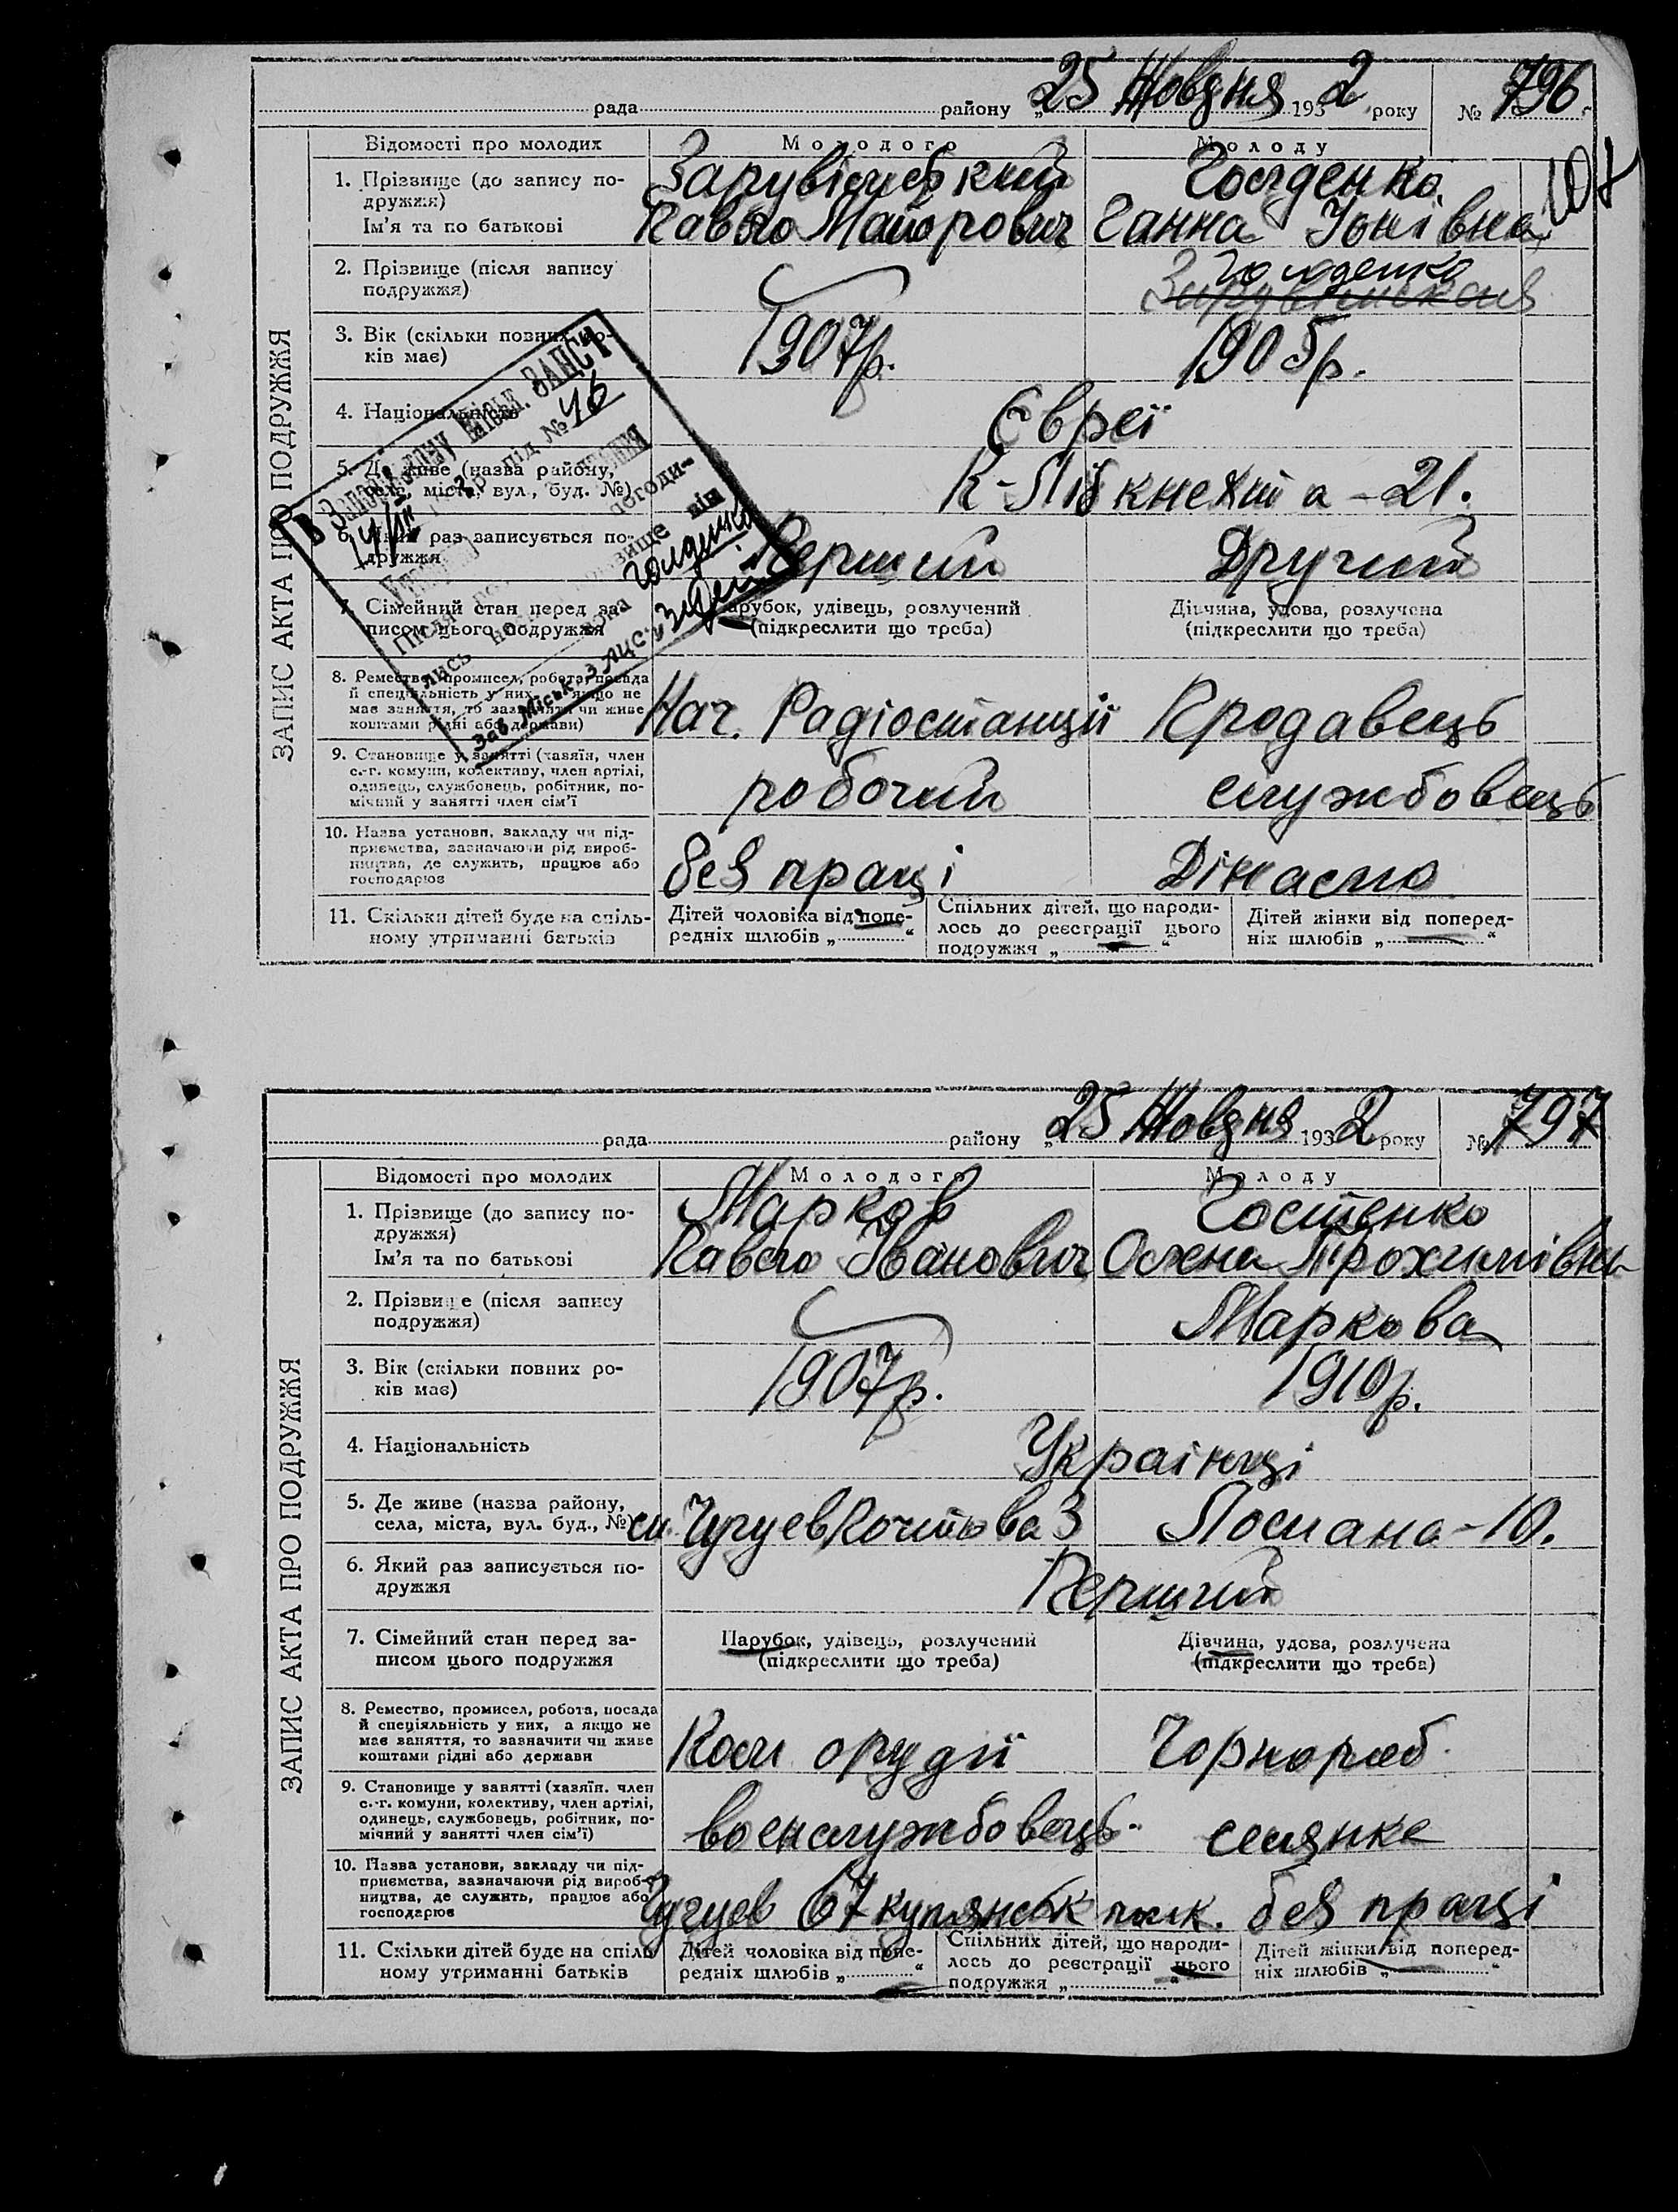 рада району „25 Жовдня 1932 року № 796
107
ЗАПИС АКТА ПРО ПОДРУЖЖЯ
Відомості про молодих Молодого Молоду
1. Прізвище (до запису подружжя) Голденко
Ім'я та по батькові Павло Майорович Ганна Йонівна
2. Прізвище (після запису
подружжя)
3. Вік (скільки повних ро-
ків має) 1907р. 1905р.
4. Національність Євреї
5. Де живе (назва району,
села, міста, вул., буд. №) К-Лібкнехта-21.
6. Який раз записується по-
дружжя Перший Другий
7. Сімейний стан перед за-
писом цього подружжя
Парубок, удівець, розлучений
(підкреслити що треба)
Дівчина, удова, розлучена
(підкреслити що треба)
8. Ремество, промисел, робота, посада
й спеціяльність у них, а якщо не
має заняття, то зазначити чи живе
коштами рідні або держави)
Нач. Радіостанції Продавець
9. Становище у занятті (хазяїн, член
с.-г. комуни, колективу, член артілі,
одинець, службовець, робітник, по-
мічний у занятті член сім'ї
робочий службовець
10. Назва установи, закладу чи під-
приємства, зазначаючи рід вироб-
ництва, де служить, працює або
господарює
без праці
11. Скільки дітей буде на спіль-
ному утриманні батьків
Дітей чоловіка від попе-
редніх шлюбів „ “
Спільних дітей, що народи-
лось до реєстрації цього
подружжя „ “
Дітей жінки від поперед-
ніх шлюбів „ “
В Запорізькому Міськ. ЗАГСІ
під № 46
погоди-
лись
прізвище він
вона Голденко
Зав. Міськ ЗАГС
рада району „25 Жовдня 1932 року № 797
ЗАПИС АКТА ПРО ПОДРУЖЖЯ
Відомості про молодих Молодого Молоду
1. Прізвище (до запису по-
дружжя) Марков Гостенко
Ім'я та по батькові Павло Іванович Олена Трохимівна
2. Прізвище (після запису
подружжя) Маркова
3. Вік (скільки повних ро-
ків має) 1907р. 1910р.
4. Національність Українці
5. Де живе (назва району,
села, міста, вул. буд., №) Чугуев Почтова 3 -10.
6. Який раз записується по-
дружжя Перший
7. Сімейний стан перед за-
писом цього подружжя
Парубок, удівець, розлучений
(підкреслити що треба)
Дівчина, удова, розлучена
(підкреслити що треба)
8. Ремество, промисел, робота, посада
й спеціяльність у них, а якщо не
має заняття, то зазначити чи живе
коштами рідні або держави
Ком орудії Чорнороб.
9. Становище у занятті (хазяїн. член
с.-г. комуни, колективу, член артілі,
одинець, службовець, робітник, по-
мічний у занятті член сім'ї)
военслужбовець. селянке
10. Назва установи, закладу чи під-
приємства, зазначаючи рід вироб-
ництва, де служить, працює або
господарює
Чугуев 67 купянськ полк. без праці
11. Скільки дітей буде на спіль
ному утриманні батьків
Дітей чоловіка від попе-
редніх шлюбів „ “
Спільних дітей, що народи-
лось до реєстрації цього
подружжя „ “
Дітей жінки від поперед-
ніх шлюбів „ “